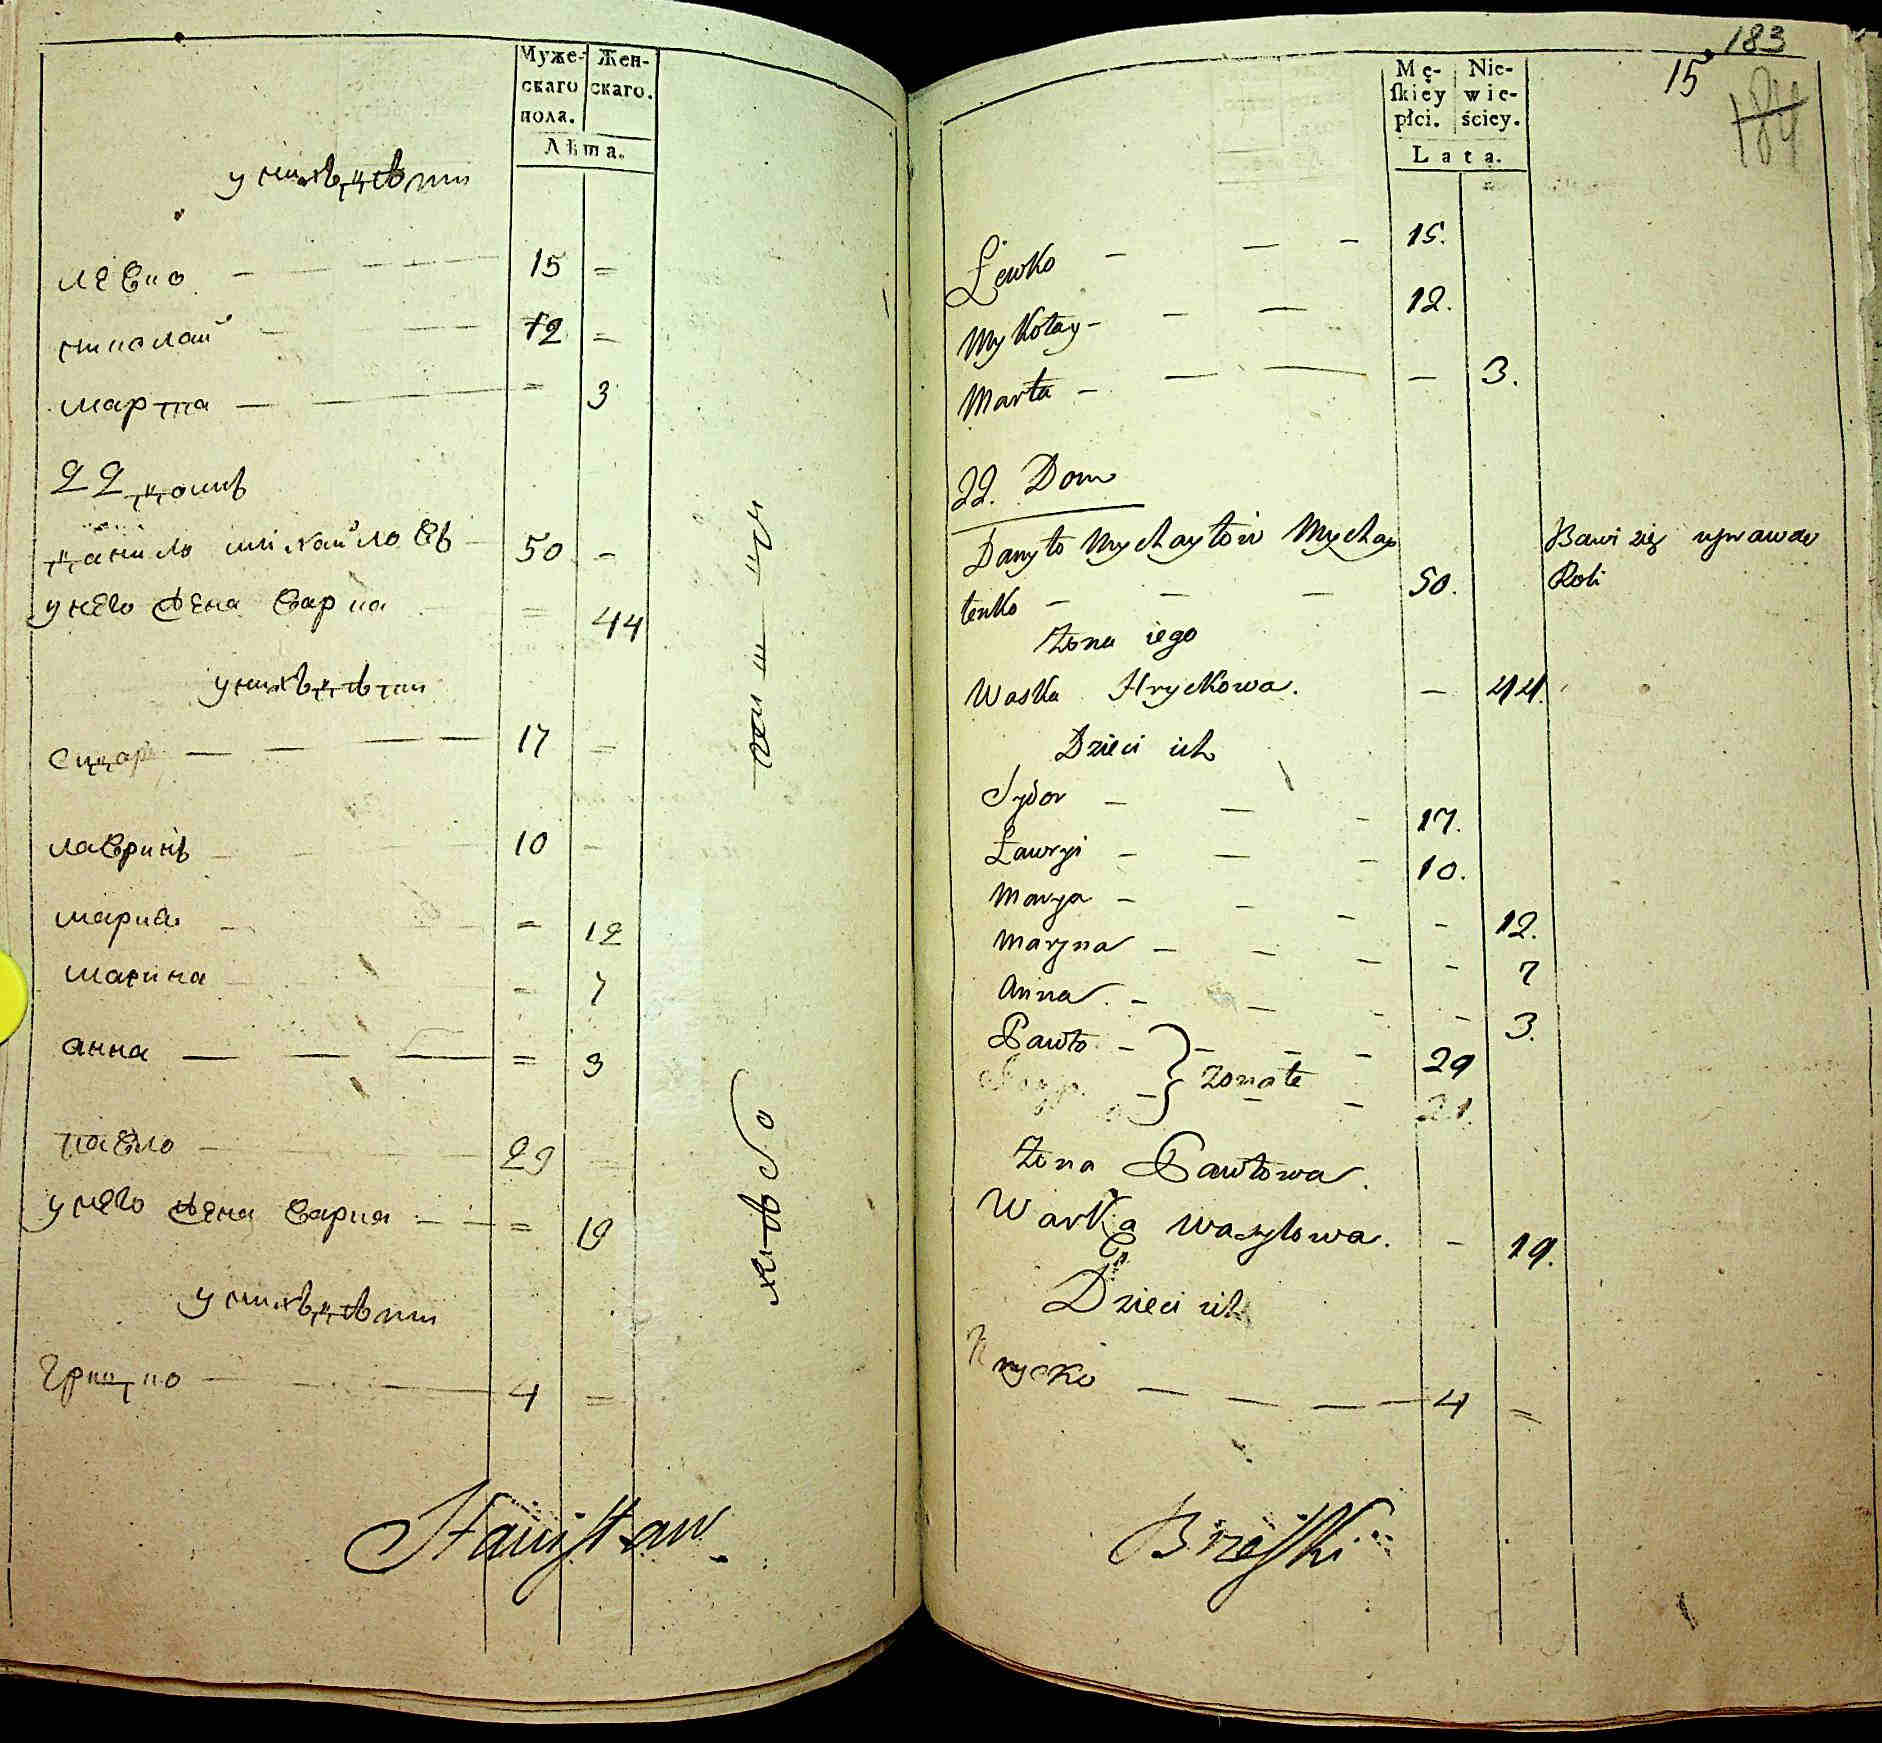 Муже-
скаго
пола.
Жен-
скаго.
Лѣта.
у нихъ дѣти
левко 15 =
николай 12 =
марта = 3
22 домъ
данило михайловъ 50 -
у него жена варка = 44
у нихъ дѣти
сидар 17 =
лавринъ 10 -
мария = 12
марина = 7
анна = 3
павло 29
у него жена варка = 19
у нихъ дѣти
грицко 4 =
хлѣбо
Stanisław
183
15
184
Mę-
ſkiey
płci.
Nie-
wie-
ściey.
Lata.
Lewko 15.
Mykołay 12.
Marta - 3.
22. Dom
Danyło Mychayłow Mychay
łenko 50.
Bawi się uprawą
Roli
Żona iego
Waska Hryckowa. - 44.
Dzieci ich
Sydor 17.
Ławryi 10.
Marya - 12.
Maryna - 7
Anna - 3.
Pawło 29
Żonate
21.
Żona Pawłowa.
Warka Wasylowa. - 19.
Dzieci ich
Hrycko 4 =
Brzeſki